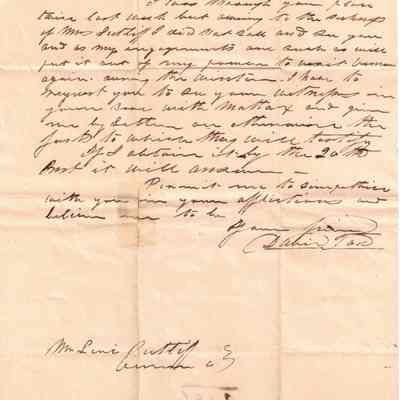 I was through your place
there last week but owing to the sickness
of Mrs Sutliff I did not call and see you
and as my engagements are such as will
put it out of my power to visit
again during the winter. I have to
request you to see your witnesses in
your case with Mattox and give
me by letter or otherwise the
facts to which they will testify
If I obtain it by the 20th
Inst it will answer —
Permit me to sympathise
with you in your afflictions and
believe me to be
Your friend
David Tod
Mr Levi Sutliff